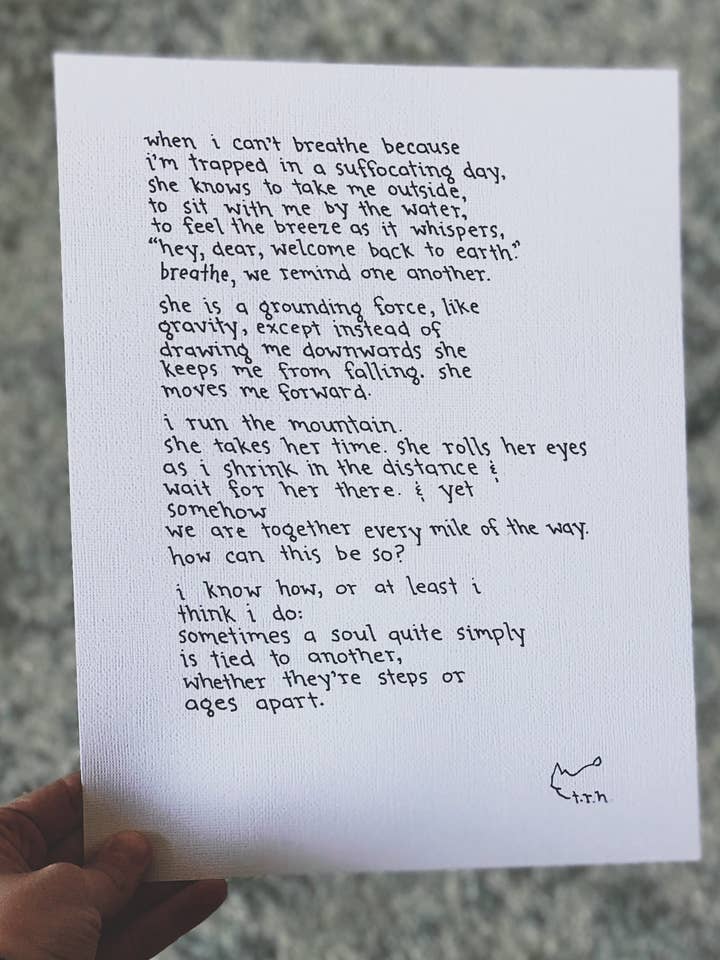 when i can't breathe because
i'm trapped in a suffocating day,
she knows to take me outside,
to sit with me by the water,
to feel the breeze as it whispers,
"hey, dear, welcome back to earth."
breathe, we remind one another.
she is a grounding force, like
gravity, except instead of
drawing me downwards she
keeps me from falling. she
moves me forward.
i run the mountain.
she takes her time. she rolls her eyes
as i shrink in the distance &
wait for her there. & yet
somehow
we are together every mile of the way.
how can this be so?
i know how, or at least i
think i do:
sometimes a soul quite simply
is tied to another,
whether they're steps or
ages apart.
t.r.h